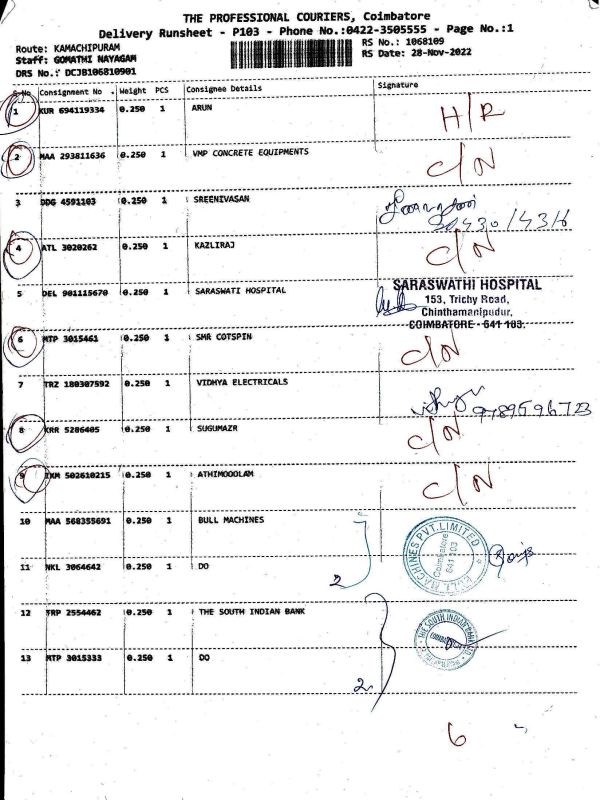 THE PROFESSIONAL COURIERS, Coimbatore
Delivery Runsheet - P103 - Phone No.:0422-3505555 - Page No.:1
Route: KAMACHIPURAM
RS No.: 1068109
Staff: GOMATHI NAYAGAM
RS Date: 28-Nov-2022
DRS No.: DCJB106810901
S No Consignment No Weight PCS Consignee Details Signature
1 KUR 694119334 0.250 1 ARUN H/R
2 MAA 293811636 0.250 1 VMP CONCRETE EQUIPMENTS C/N
3 DDG 4591103 0.250 1 SREENIVASAN
4 ATL 3020262 0.250 1 KAZLIRAJ C/N
5 DEL 901115670 0.250 1 SARASWATI HOSPITAL
SARASWATHI HOSPITAL
153, Trichy Road,
Chinthamanipudur,
COIMBATORE - 641 103.
6 MTP 3015461 0.250 1 SMR COTSPIN C/N
7 TRZ 180307592 0.250 1 VIDHYA ELECTRICALS
9789596723
8 KRR 5286405 0.250 1 SUGUMAZR C/N
9 IKM 502610215 0.250 1 ATHIMOOOLAM C/N
10 MAA 568355691 0.250 1 BULL MACHINES
BULL MACHINES PVT. LIMITED
Coimbatore
641 103
11 NKL 3064642 0.250 1 DO 2
12 TRP 2554462 0.250 1 THE SOUTH INDIAN BANK
THE SOUTH INDIAN BANK
13 MTP 3015333 0.250 1 DO
2
6